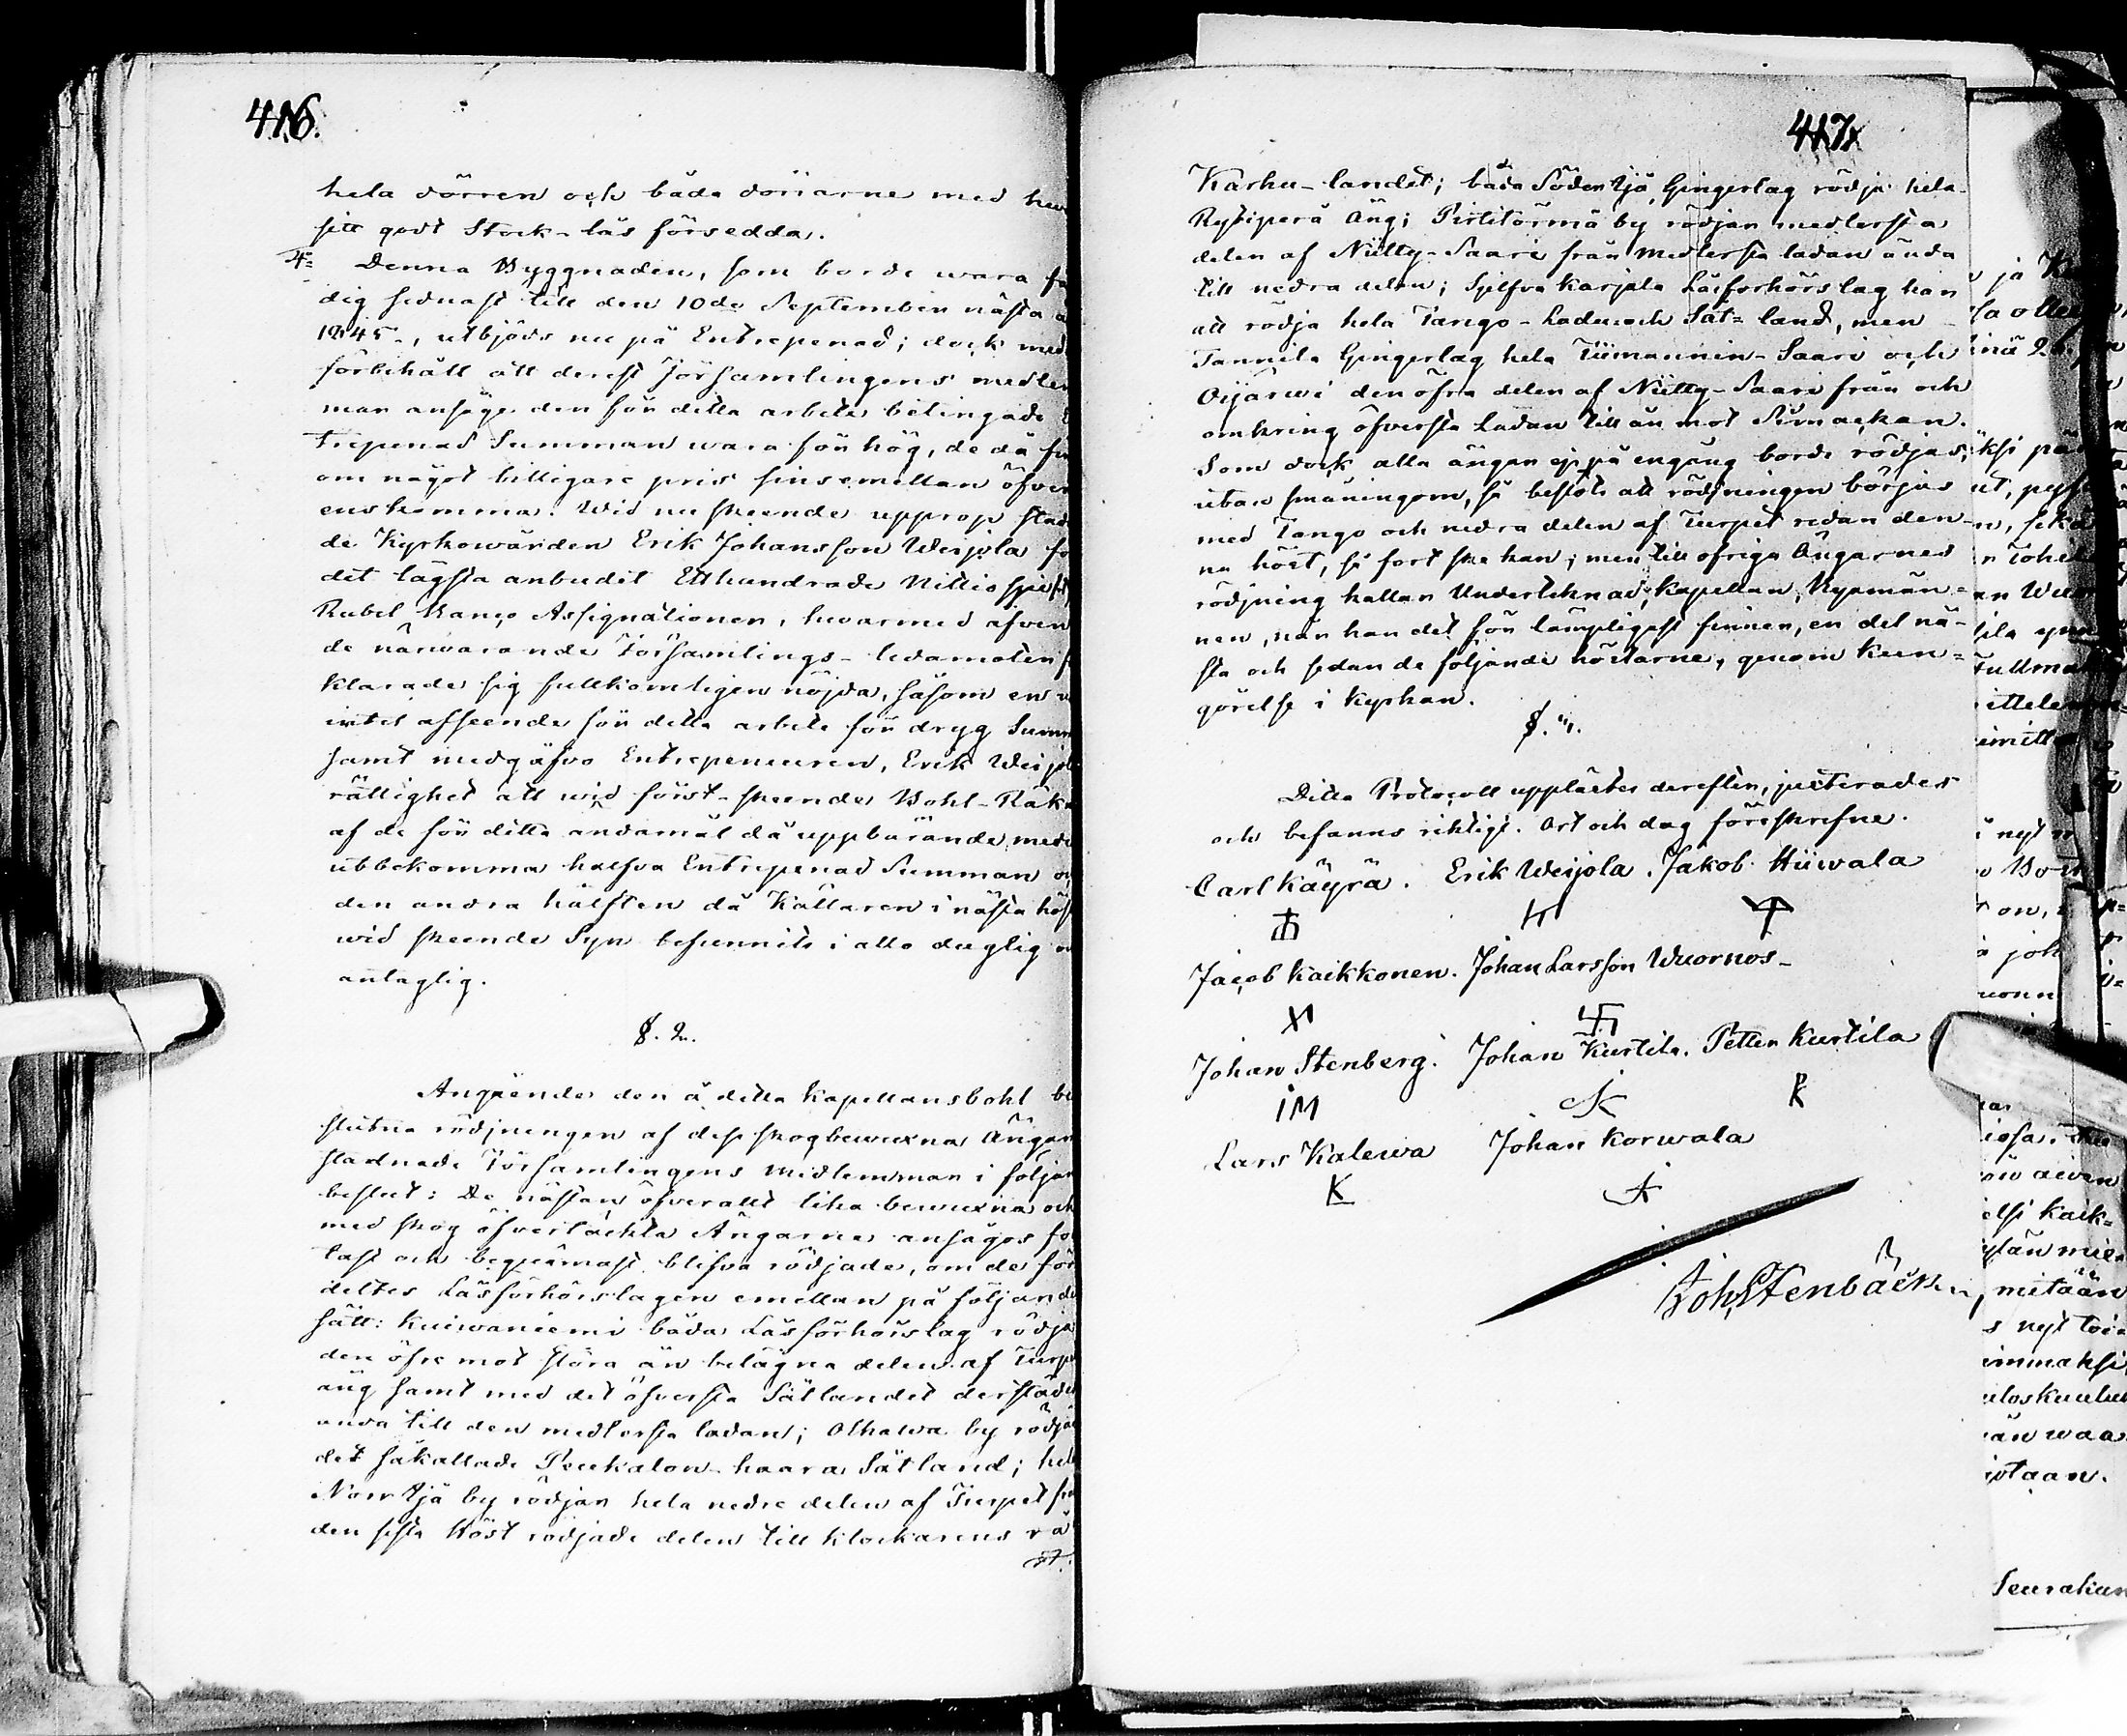 416.
hela dörren och båda dörrarne med hwar
sitt godt Stock-lås försedda.
4= Denna Byggnaden, som borde wara fä
dig sednast till den 10de September nästa å
1845, utbjöds nu på Entreprenad; dock med
förbehåll att derest Församlingens medlem
mar ansåge den för detta arbete betingade E
treprenad Summan wara för hög, de då få
om något billigare pris sinsemellan öfver
enskomma. Wid nu skeende upprop stad
de Kyrkowärden Erik Johansson Weijola för
det lägsta anbudet Etthundrade Nittio sju
Rubel Banco Assignationer, hwarmed äfven
de närwarande Församlings-ledamöter
klarade sig fullkomligen nöjda, såsom en u
intet afseende för detta arbete för dryg Summ
samt medgåfvo Entrepeneuren, Erik Weijola
rättighet att wid först-skeende Bohl-Räk
af de för detta ändamål då uppbärande mede
utbekomma halfva Entreprenad Summan o
den andra hälften då Källaren i nästa höst
wid skeende Syn befunnits i allo duglig o
antaglig.
§. 2.
Angående den å detta Kapellansbohl be
slutna rödjningen af dess skogbewuxna Ängar
stadnade Församlingens Medlemmar i följan
beslut: De nästan öfverallt lika bewuxna och
med skog öfvertäckta Ängarne ansågos for
tast och beqvämast blifva rödjade, om de för
deltes Läsförhörslagen emellan på följande
sätt: Kuiwaniemi båda Läsförhörslag rödja
den öfre mot stora ån belägna delen af Turp
äng samt med det öfversta Såtlandet derstäde
ända till den medlersta ladan; Olhawa by rödja
det såkallade Peukalon-haara Såtland; hela
Norr Ijå by rödjar hela nedre delen af Turpet fr
den sista höst rödjade delen till Klockarens rå
417.
Karhu-landet; båda Söder Ijå Gingerlag rödja hela
Rysiperä Äng; Pirttitörmä by rödjar medlersta
delen af Niitty-Saari från medlersta ladan ända
till nedra delen; Sjelfva Karjala Läsförhörslag har
att rödja hela Tango-Laden och Såt=land, men
Tannila Gingerlag hela Tiimannin-Saari och
Oijärwi den öfra delen af Niitty-Saari från och
omkring öfversta Ladan till ån mot Simackan.
Som dock alla ängar ej på engång borde rödjas,
utan småningom, så beslöts att rödjningen börjas
med Tango och nedra delen af Turpet redan den-
na höst, så fort ske kan; men till öfriga Ängarnes
rödjning kallar Undertecknad, Kapellan, Kyrmän=
nen, när han det för lämpligast finner, en del nä-
sta och sedan de följande höstarne, genom kun=
görelse i Kyrkan.
Detta Protocoll upplästes derefter, justerades
och befanns riktigt. Ort och dag föreskrefne.
Carl Käyrä. Erik Weijola. Jakob Hiiwala
Jacob Kaikkonen. Johan Larsson Wuornos-
Johan Stenberg. Johan Kurtila. Petter Kurtila
IM K
Lars Kalewa Johan Korwala
K
Joh. Stenbäck
ja
ksi
ut,
n
an
Fullma
ittele
nyt
on,
joh
elsi Kaik=
mitään
s nyt toi
immaksi
än waa
Seurakun